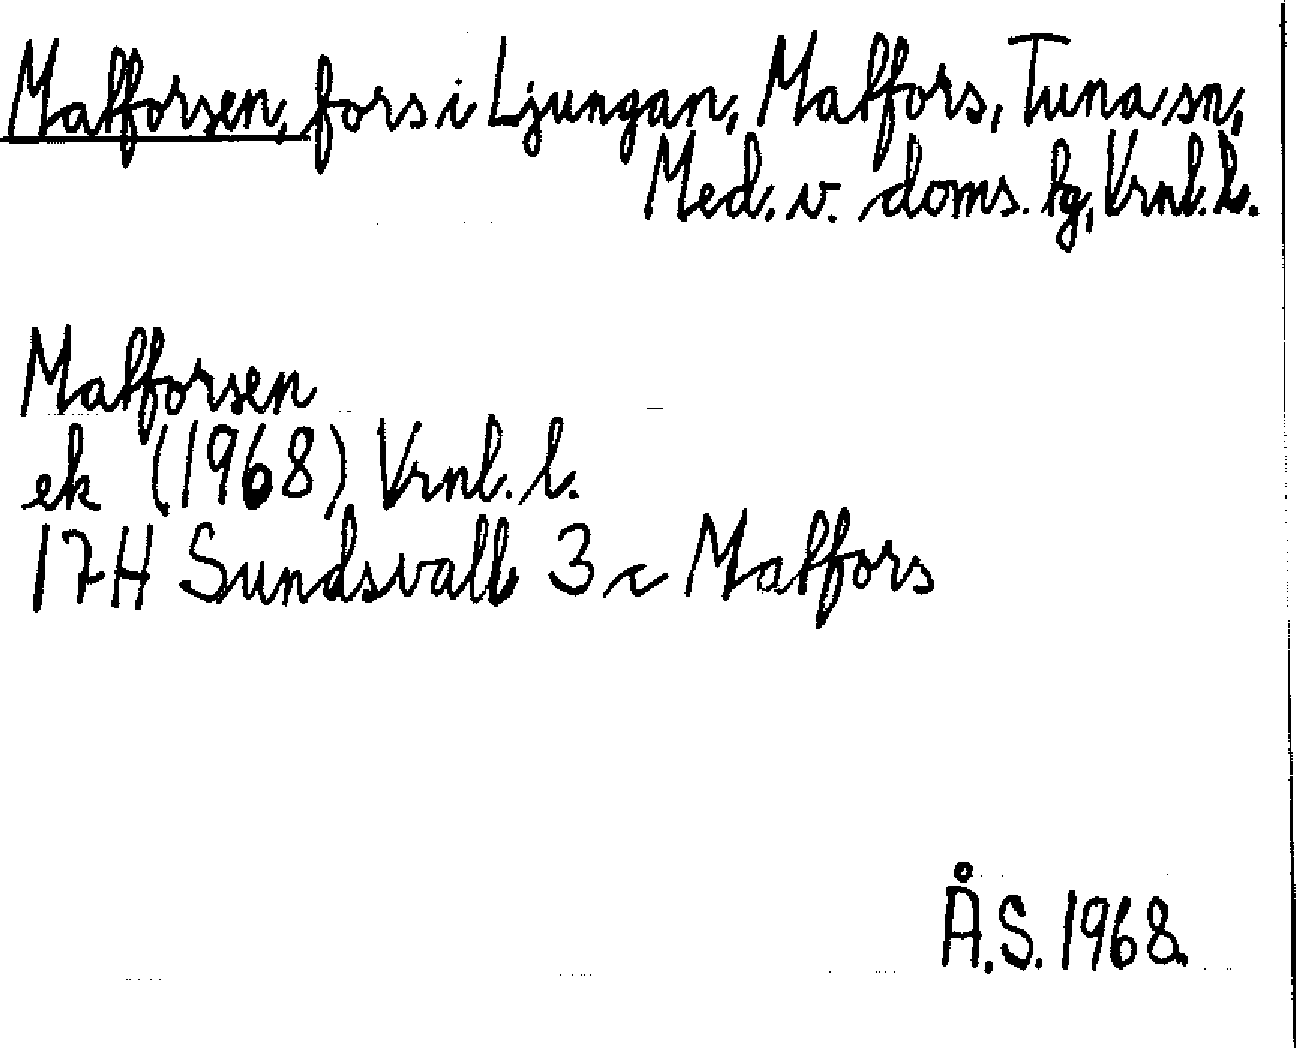 Matforsen, fors i Ljungan, Matfors, Tuna sn,
Med. v. doms. tg, Vrnl. l.
Matforsen
ek (1968) Vrnl. l.
17H Sundsvall 3 c Matfors
Å.S. 1968.